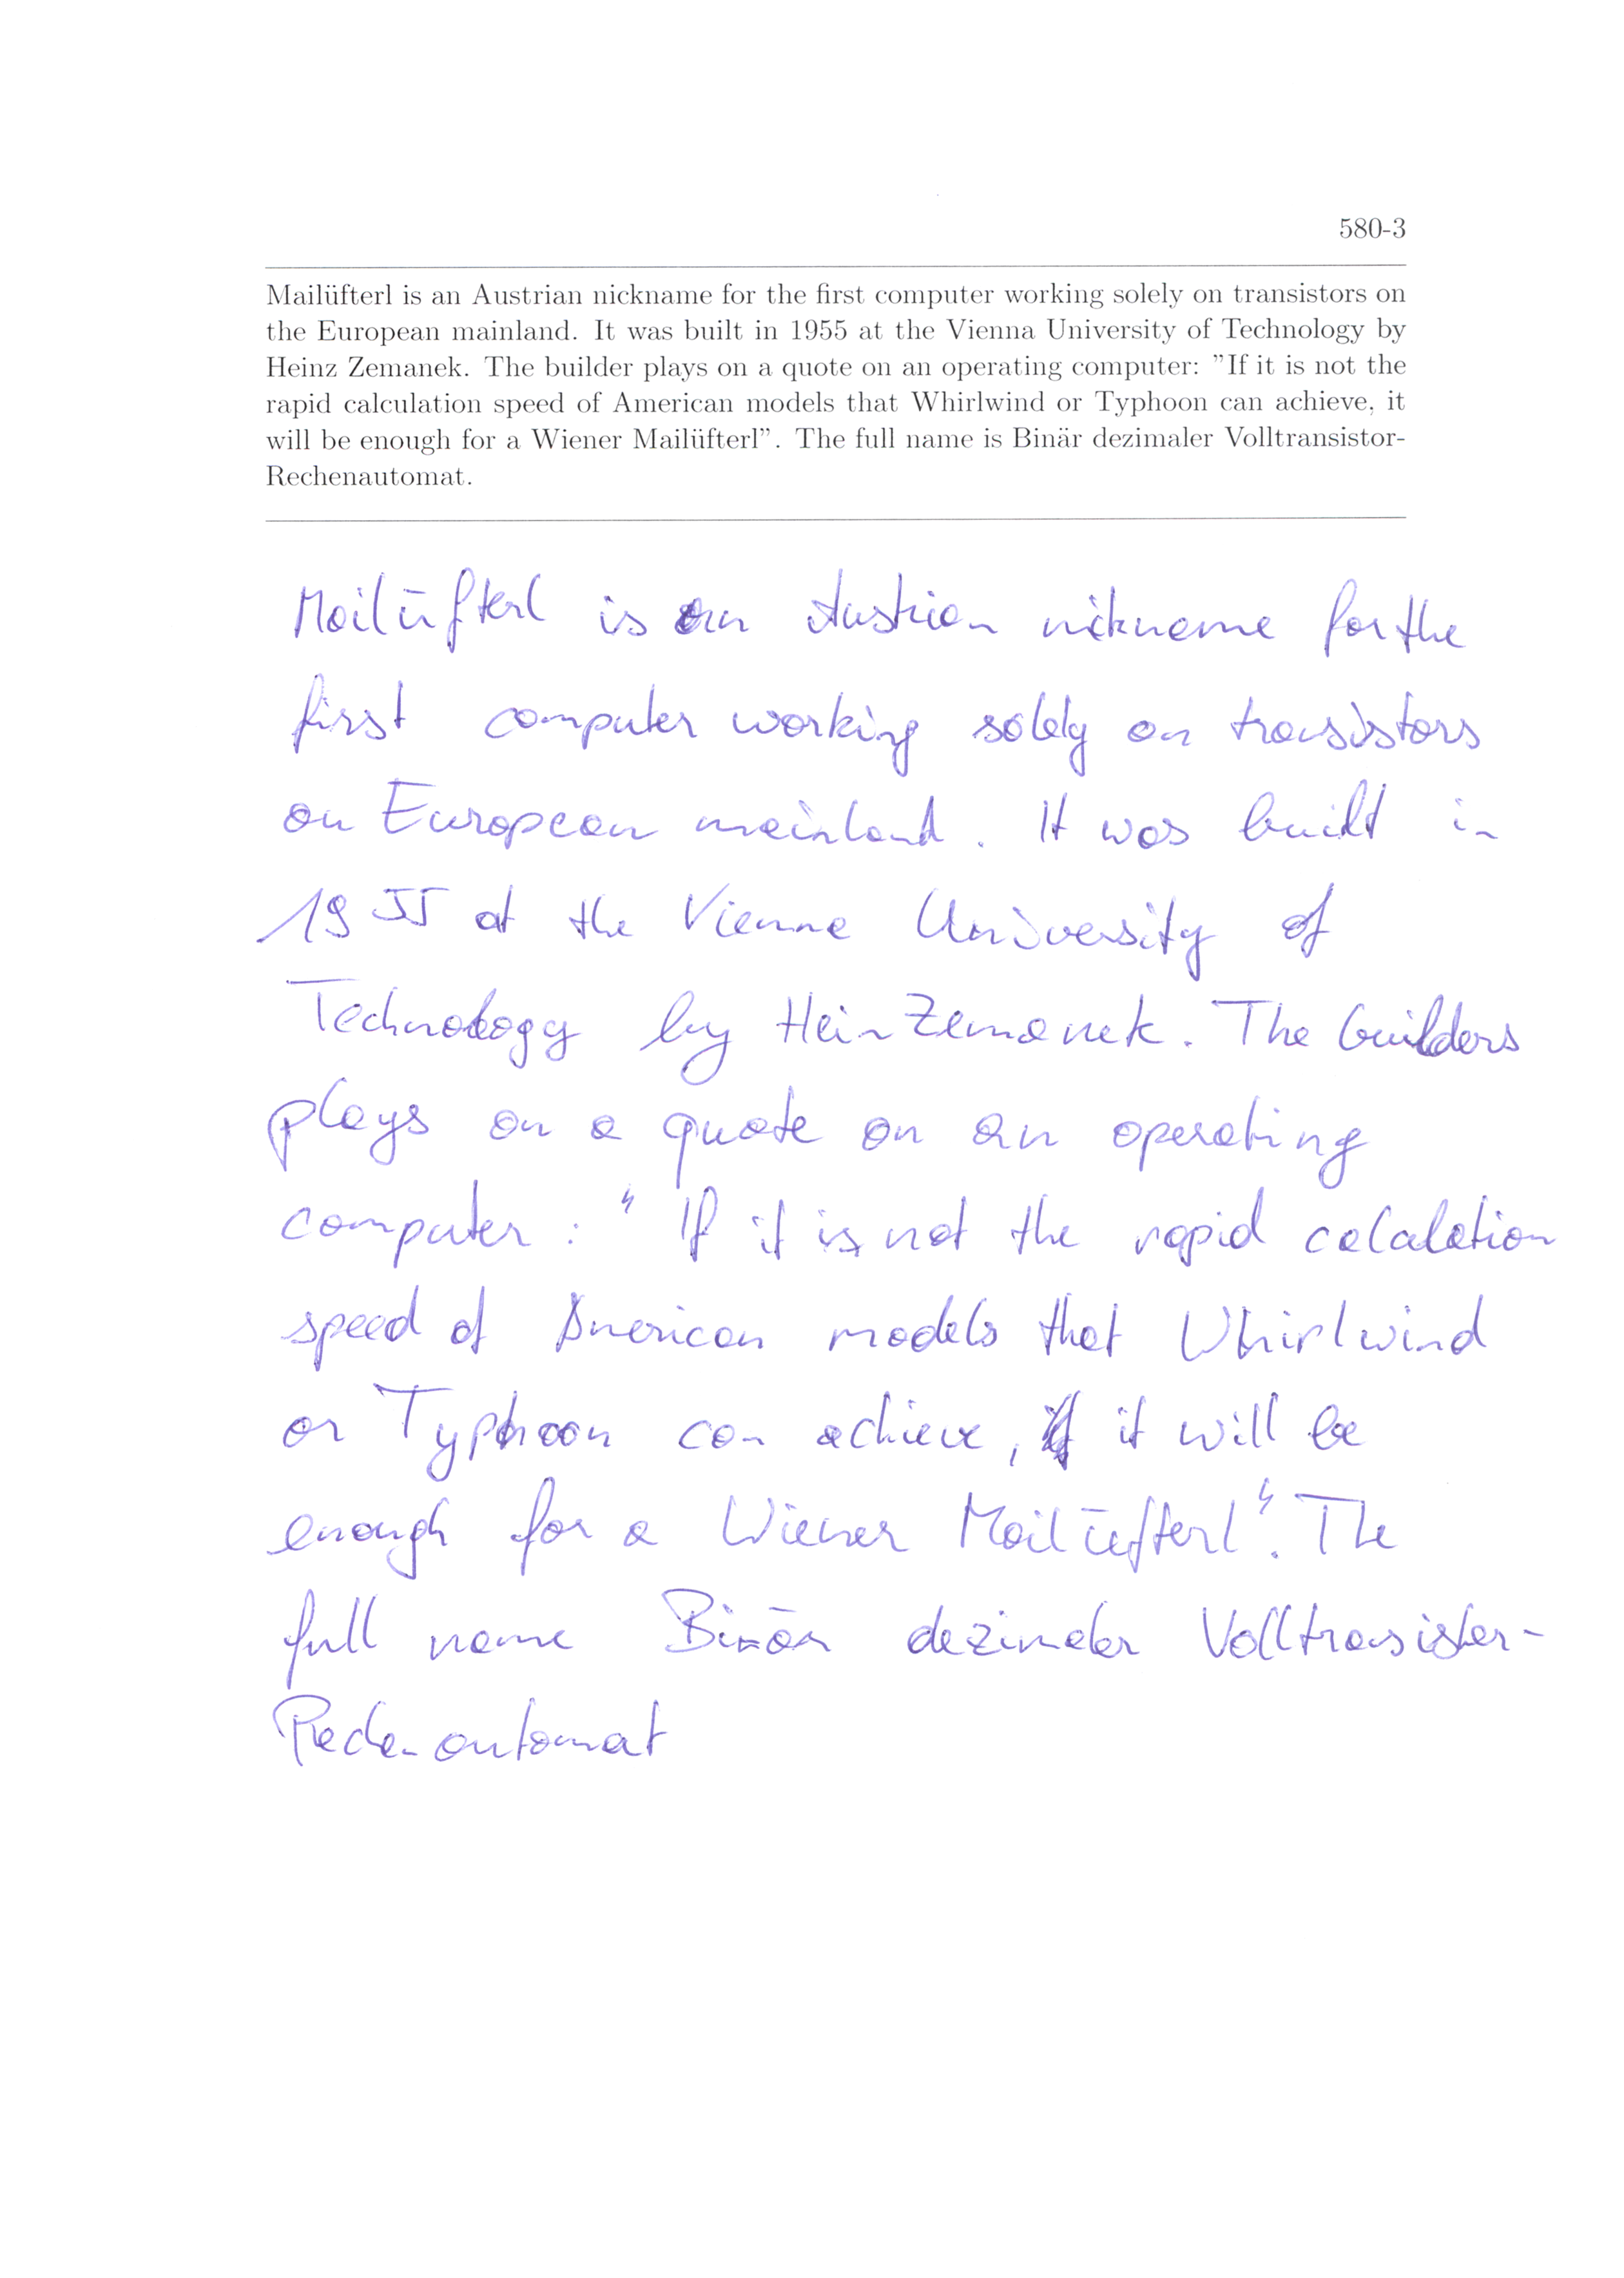 580-3
Mailüfterl is an Austrian nickname for the first computer working solely on transistors on
the European mainland. It was built in 1955 at the Vienna University of Technology by
Heinz Zemanek. The builder plays on a quote on an operating computer: "If it is not the
rapid calculation speed of American models that Whirlwind or Typhoon can achieve, it
will be enough for a Wiener Mailüfterl". The full name is Binär dezimaler Volltransistor-
Rechenautomat.
Mailüfterl is an Austrian nickname for the
first computer working solely on transistors
on European mainland. It was built in
1955 at the Vienna University of
Technology by Hein Zemanek. The builders
plays on a quote on an operating
computer: "If it is not the rapid calculation
speed of American models that Whirlwind
or Typhoon can achieve, it will be
enough for a Wiener Mailüfterl". The
full name Binär dezimaler Volltransister-
Rechenautomat